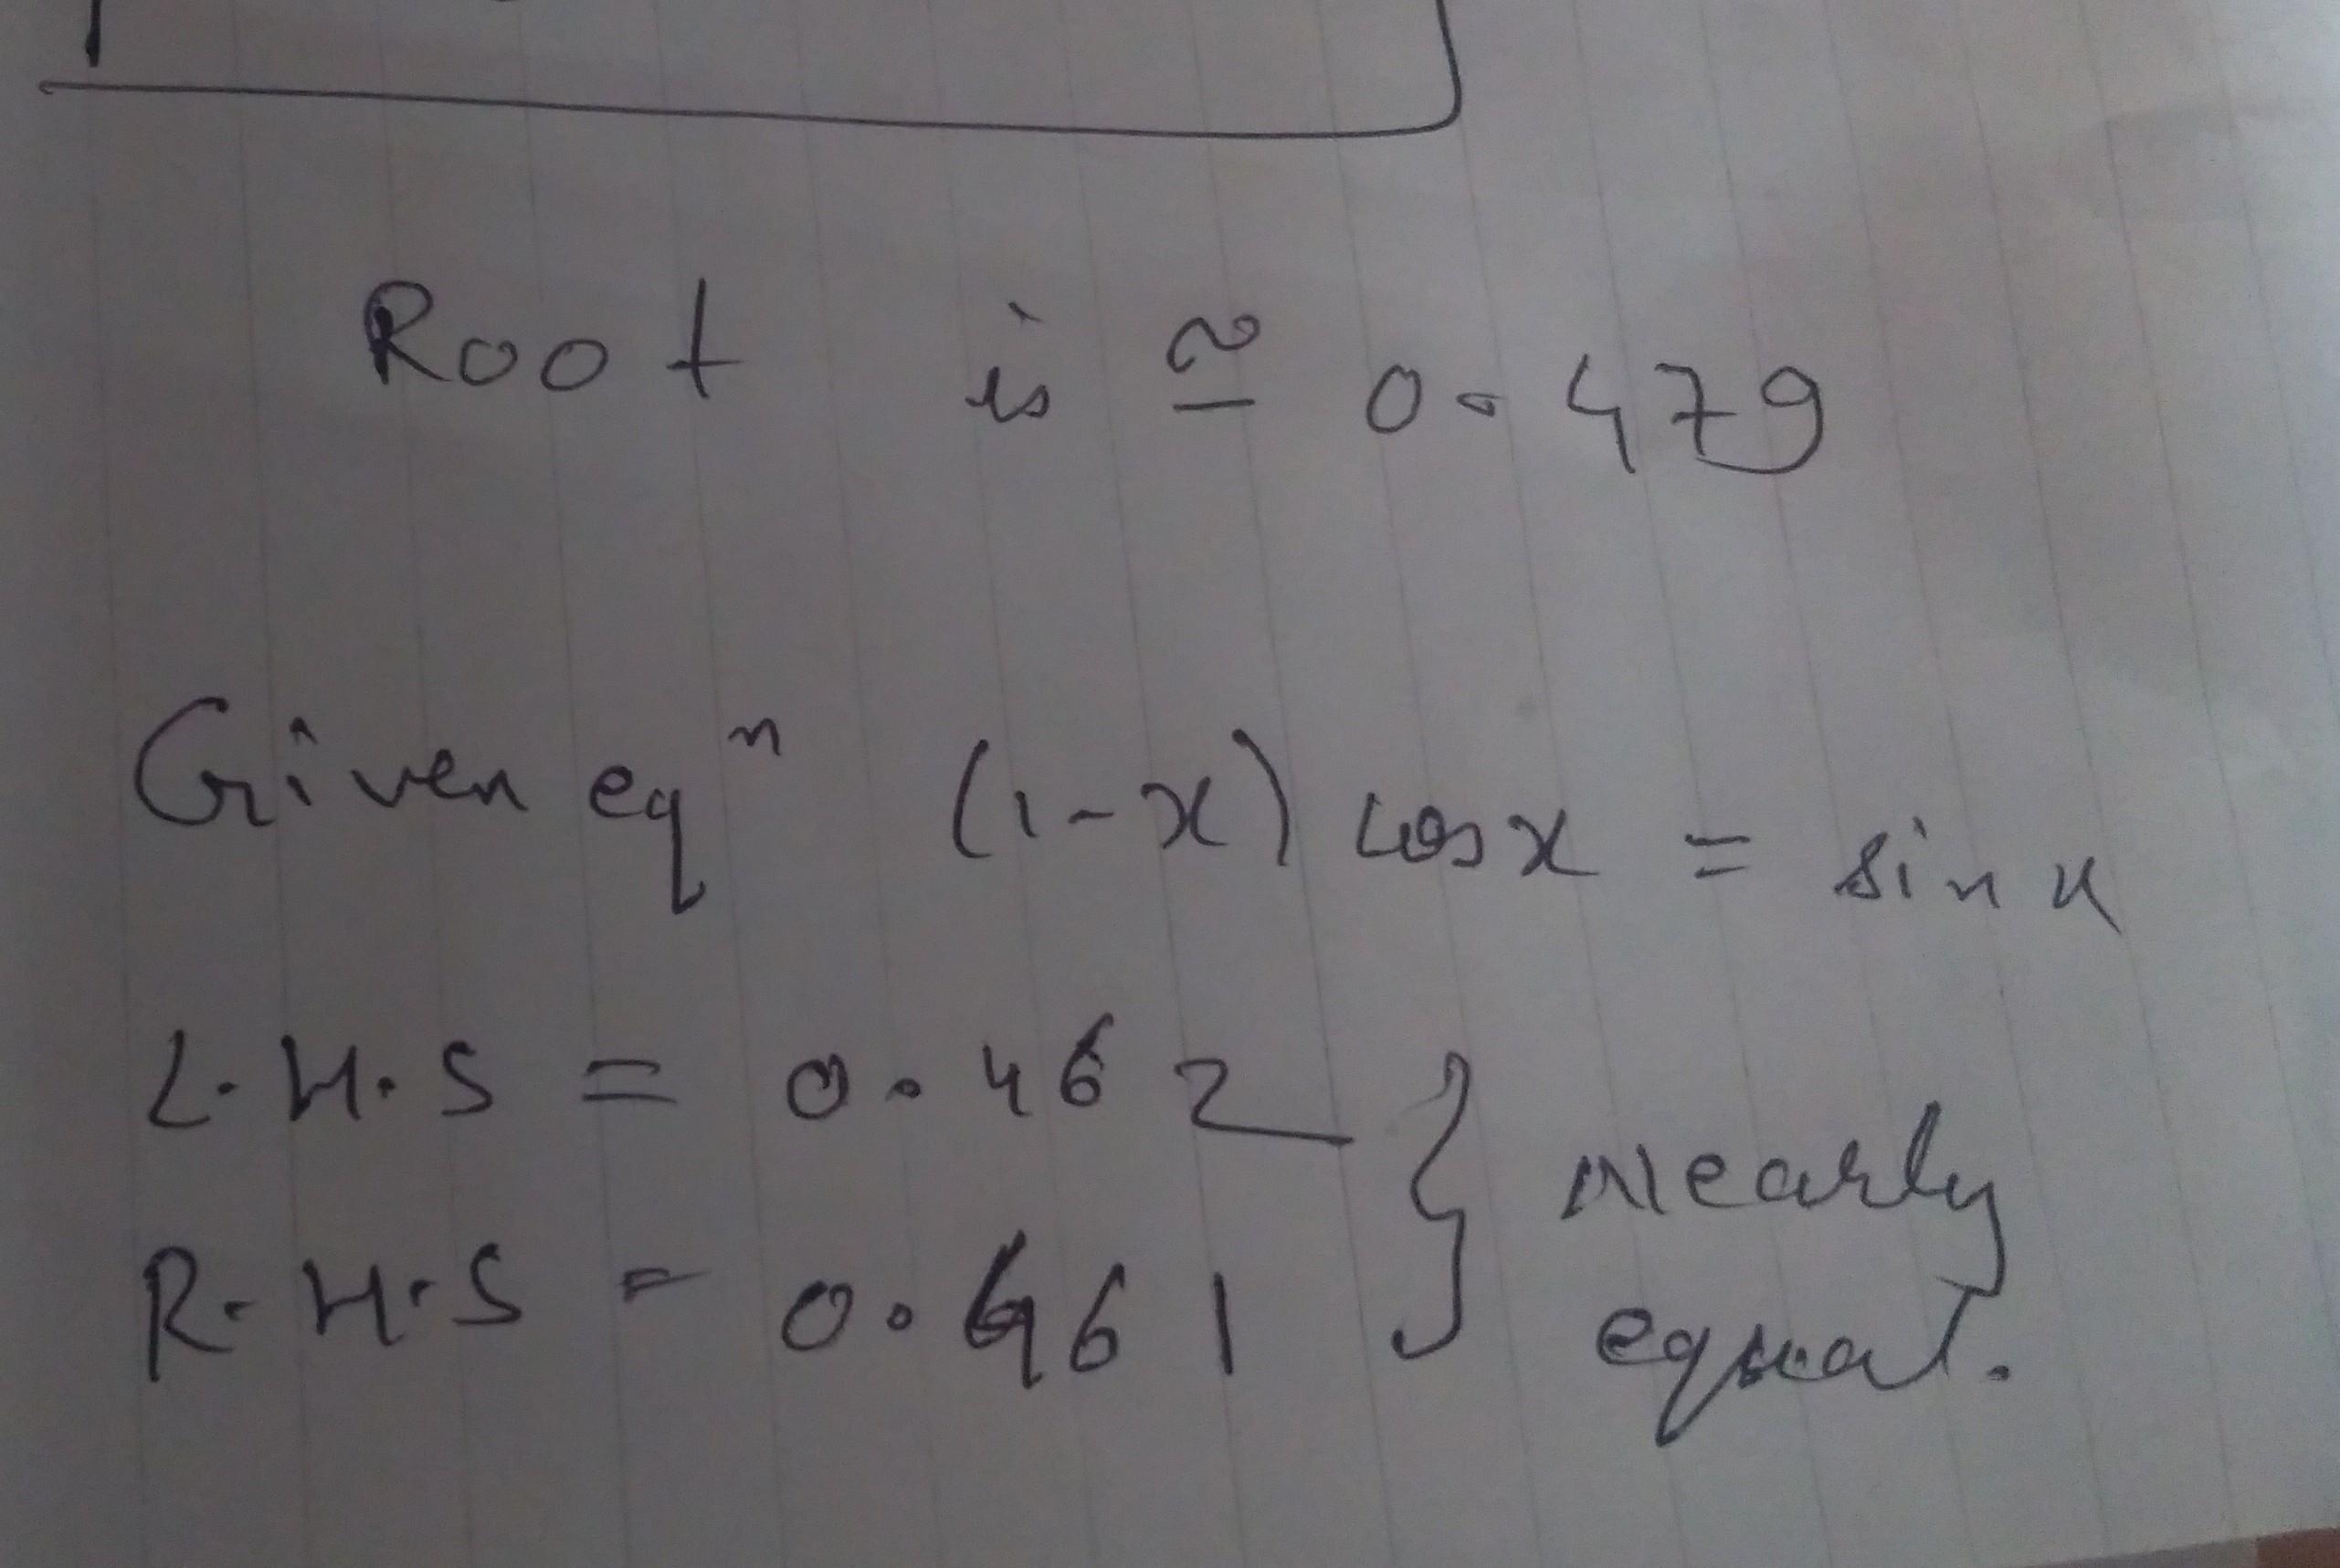 Root is ≅ 0.479
Given eqⁿ (1-x) cos x = sin x
L.H.S = 0.462
R.H.S = 0.461
} Nearly equal.